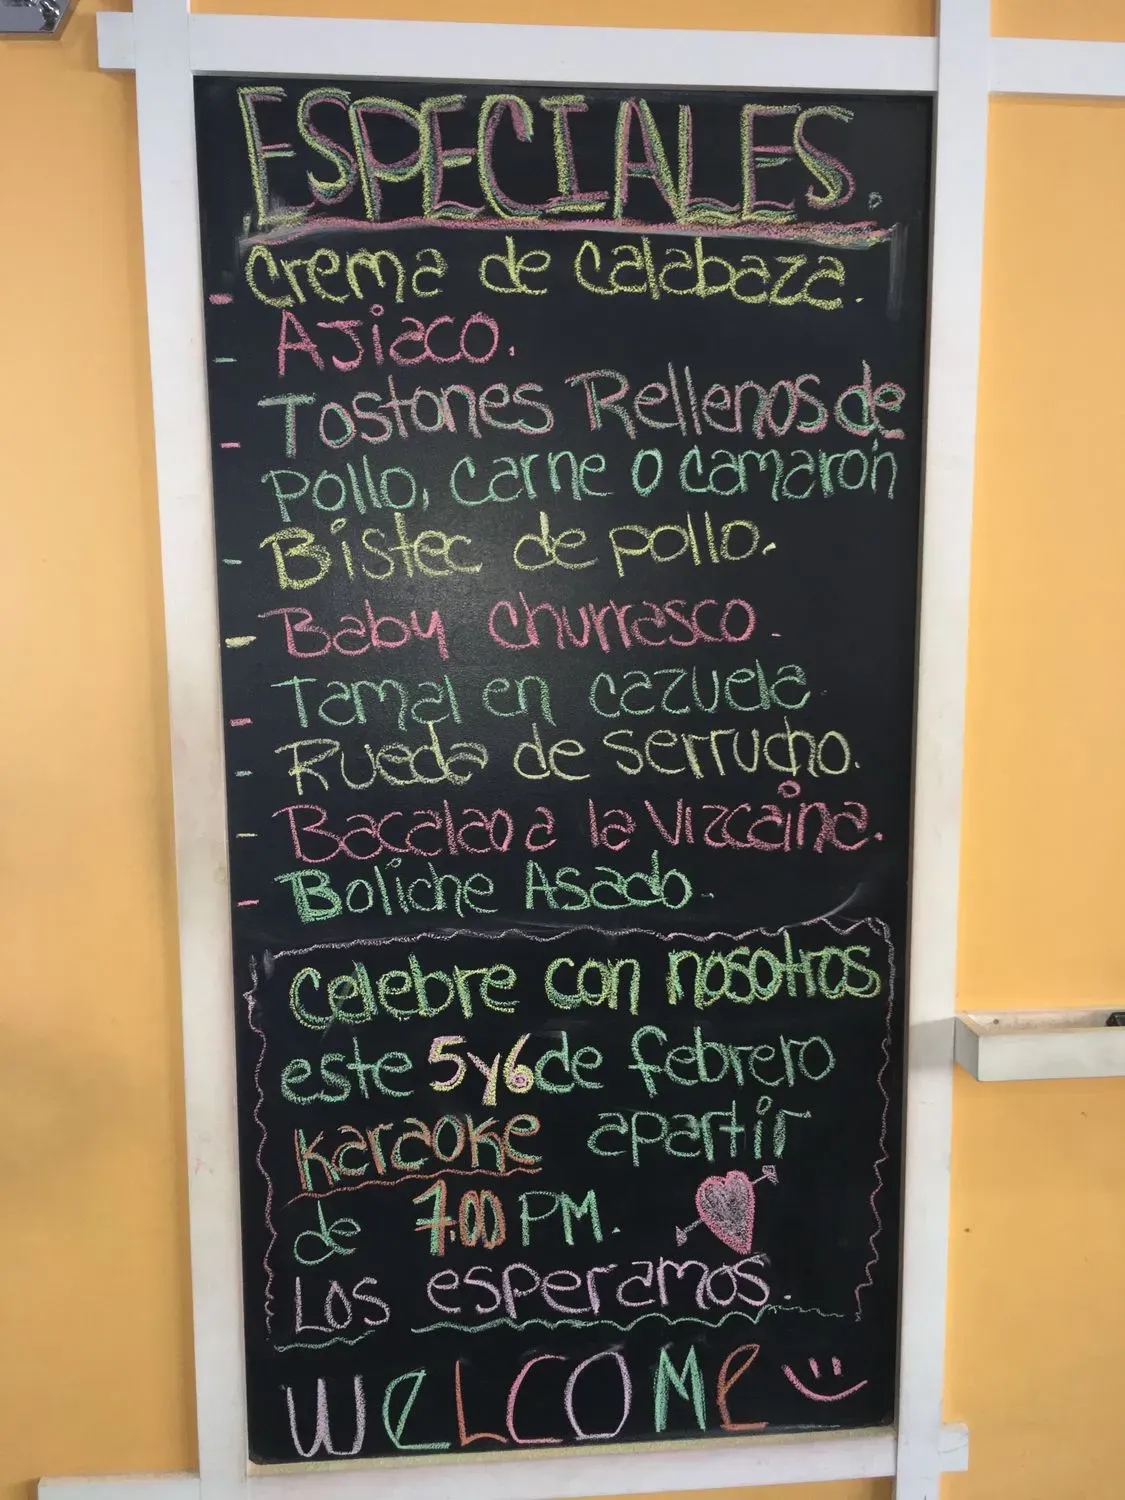 ESPECIALES.
Crema de calabaza.
- AJiaco.
- Tostones Rellenos de
- pollo, carne o camarón
- Bistec de pollo.
- Baby churrasco.
- Tamal en cazuela.
- Rueda de serrucho.
- Bacalao a la Vizcaina.
- Boliche Asado.
Celebre con nosotros
este 5y6 de febrero
karaoke apartir
de 7:00 PM.
Los esperamos.
WeLCOMe